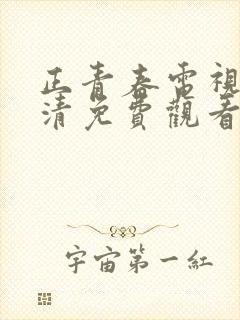 正青春電視
清免費觀看
宇宙第一紅